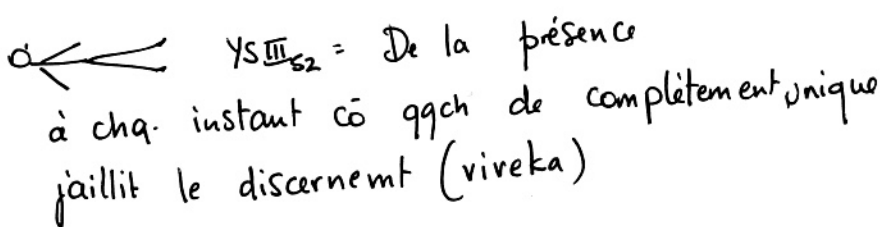 YSIII52 = De la présence
à chq. instant cō qqch de complètement unique
jaillit le discernemt (viveka)